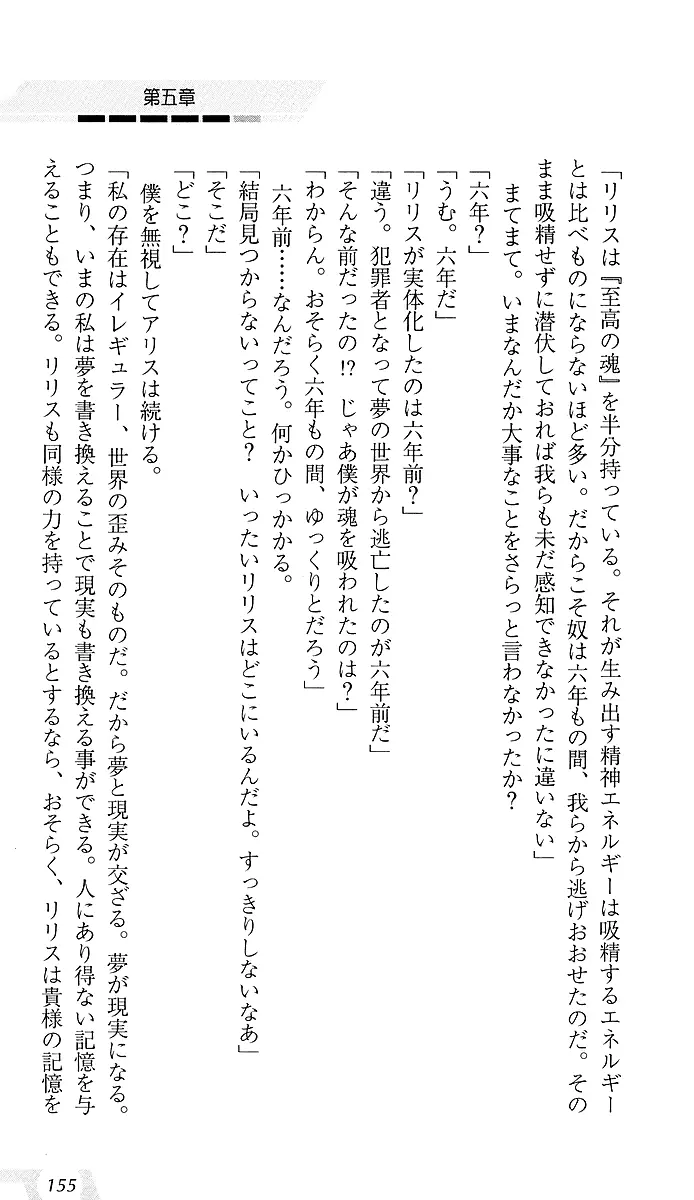 第五章
「リリスは『至高の魂』を半分持っている。それが生み出す精神エネルギーは吸精するエネルギー
とは比べものにならないほど多い。だからこそ奴は六年もの間、我らから逃げおおせたのだ。その
まま吸精せずに潜伏しておれば我らも未だ感知できなかったに違いない」
　まてまて。いまなんだか大事なことをさらっと言わなかったか？
「六年？」
「うむ。六年だ」
「リリスが実体化したのは六年前？」
「違う。犯罪者となって夢の世界から逃亡したのが六年前だ」
「そんな前だったの!?　じゃあ僕が魂を吸われたのは？」
「わからん。おそらく六年もの間、ゆっくりとだろう」
　六年前……なんだろう。何かひっかかる。
「結局見つからないってこと？　いったいリリスはどこにいるんだよ。すっきりしないなあ」
「そこだ」
「どこ？」
　僕を無視してアリスは続ける。
「私の存在はイレギュラー、世界の歪みそのものだ。だから夢と現実が交ざる。夢が現実になる。
つまり、いまの私は夢を書き換えることで現実も書き換える事ができる。人にあり得ない記憶を与
えることもできる。リリスも同様の力を持っているとするなら、おそらく、リリスは貴様の記憶を
155